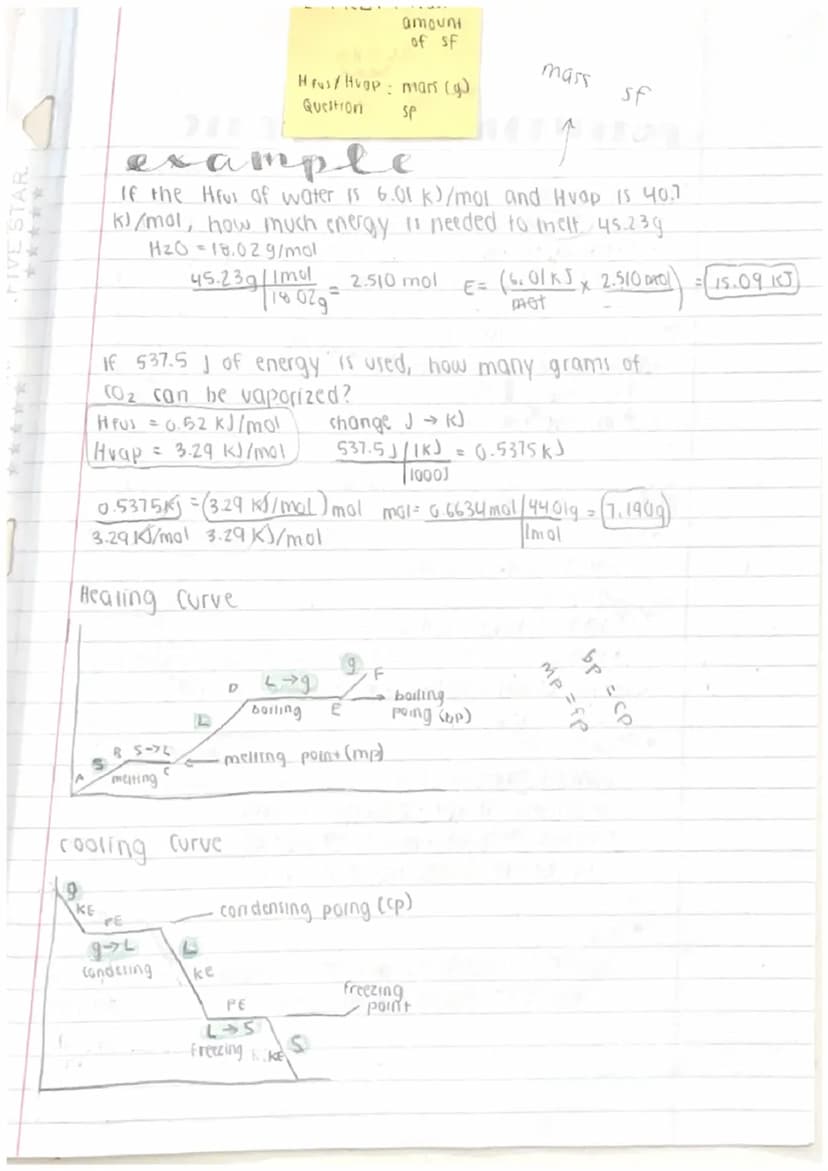 amount
of sf
Hfus/Hvap : mass (g)
Question sf
mass sf
FIVE STAR
example
If the Hfus of water is 6.01 kJ/mol and Hvap is 40.7
kJ/mol, how much energy is needed to melt 45.23g
H2O = 18.02 g/mol
45.23g | 1mol
| 18.02g = 2.510 mol E = (6.01 KJ / mol × 2.510 mol) = 15.09 KJ
If 537.5 J of energy is used, how many grams of
CO2 can be vaporized?
Hfus = 0.52 KJ/mol change J → KJ
Hvap = 3.29 KJ/mol 537.5 J | 1KJ = 0.5375 KJ
| 1000J
0.5375KJ = (3.29 KJ/mol) mol mol = 0.6634 mol | 44.01g = 7.190g
3.29 KJ/mol 3.29 KJ/mol | 1mol
Heating Curve
g F
D L → g
boiling E boiling
poing (bp)
L
B S→L
S melting point (mp)
A melting C
bp = cp
mp = fp
cooling curve
g
KE PE condensing poing (cp)
g→L L
condesing KE
PE freezing
point
L → S
freezing KE S